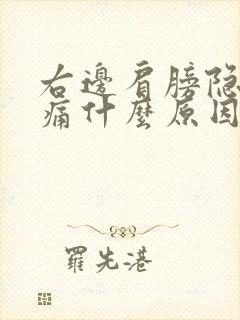 右邊肩膀隐
痛什麼原因
羅先港